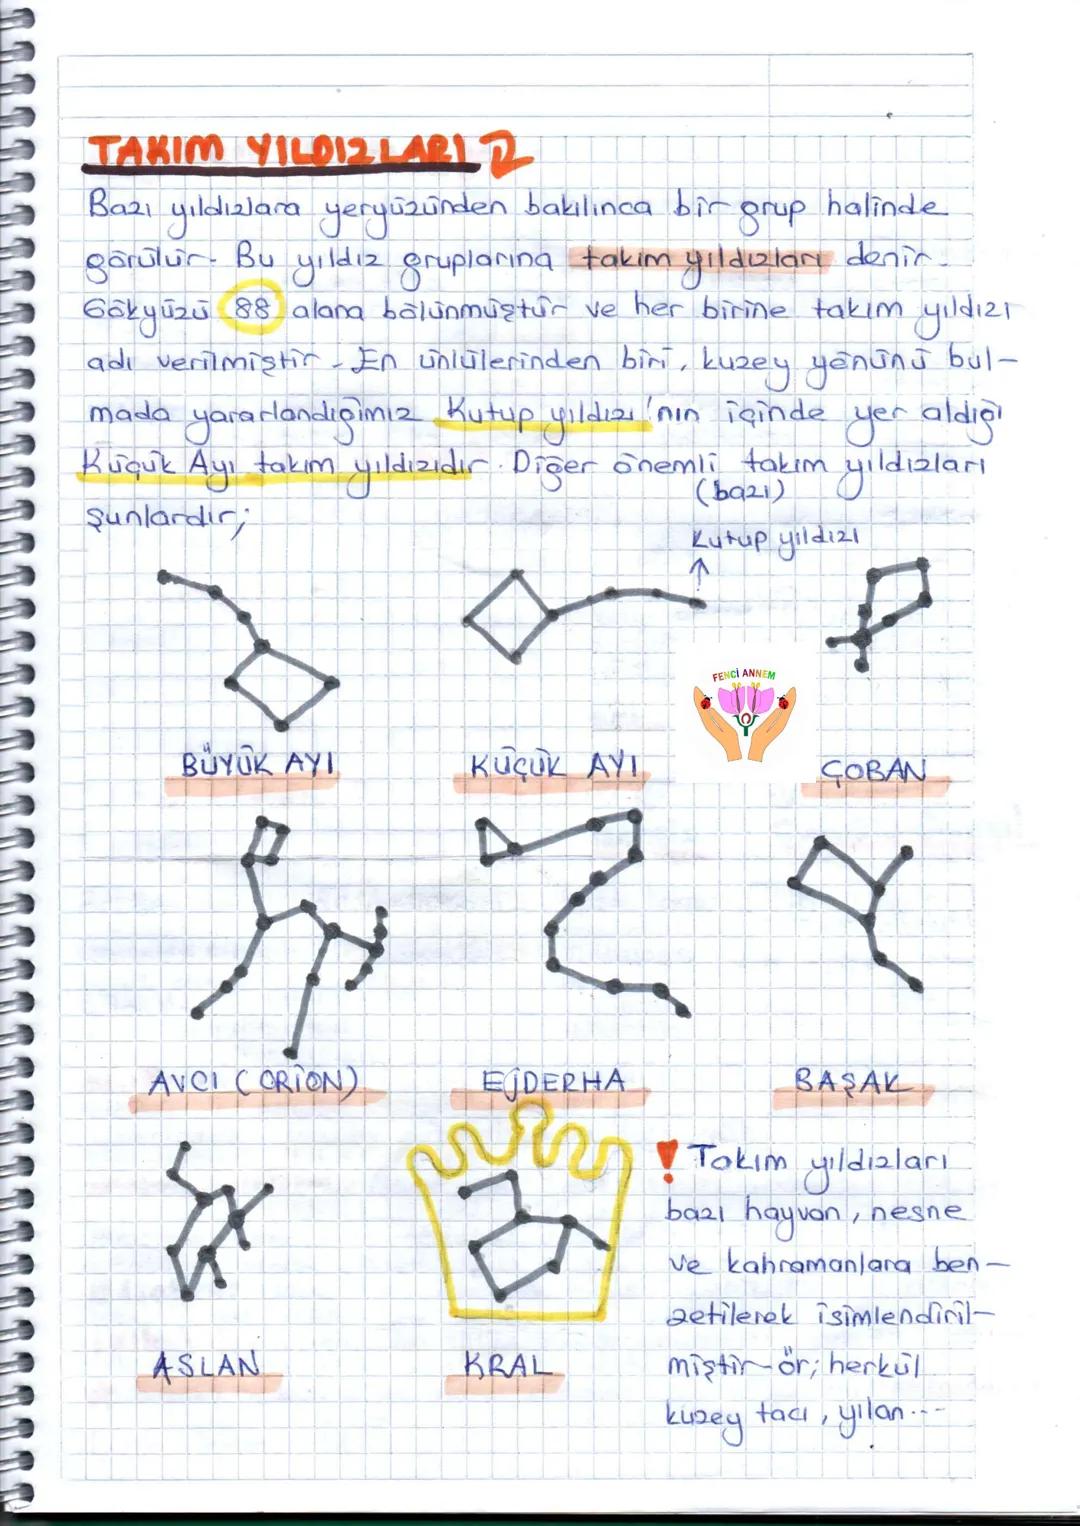 TAKIM YILDIZLARI
Bazı yıldızlara yeryüzünden bakılınca bir grup halinde
görülür. Bu yıldız gruplarına takım yıldızları denir.
Gökyüzü 88 alana bölünmüştür ve her birine takım yıldızı
adı verilmiştir. En ünlülerinden biri, kuzey yönünü bul-
mada yararlandığımız Kutup yıldızı'nın içinde yer aldığı
Küçük Ayı takım yıldızıdır. Diğer önemli takım yıldızları
(bazı)
şunlardır;
Kutup yıldızı
FENCİ ANNEM
BÜYÜK AYI
KÜÇÜK AYI
ÇOBAN
AVCI (ORİON)
EJDERHA
BAŞAK
! Takım yıldızları
bazı hayvan, nesne
ve kahramanlara ben-
zetilerek isimlendiril-
miştir ör; herkül
kuzey tacı, yılan...
ASLAN
KRAL